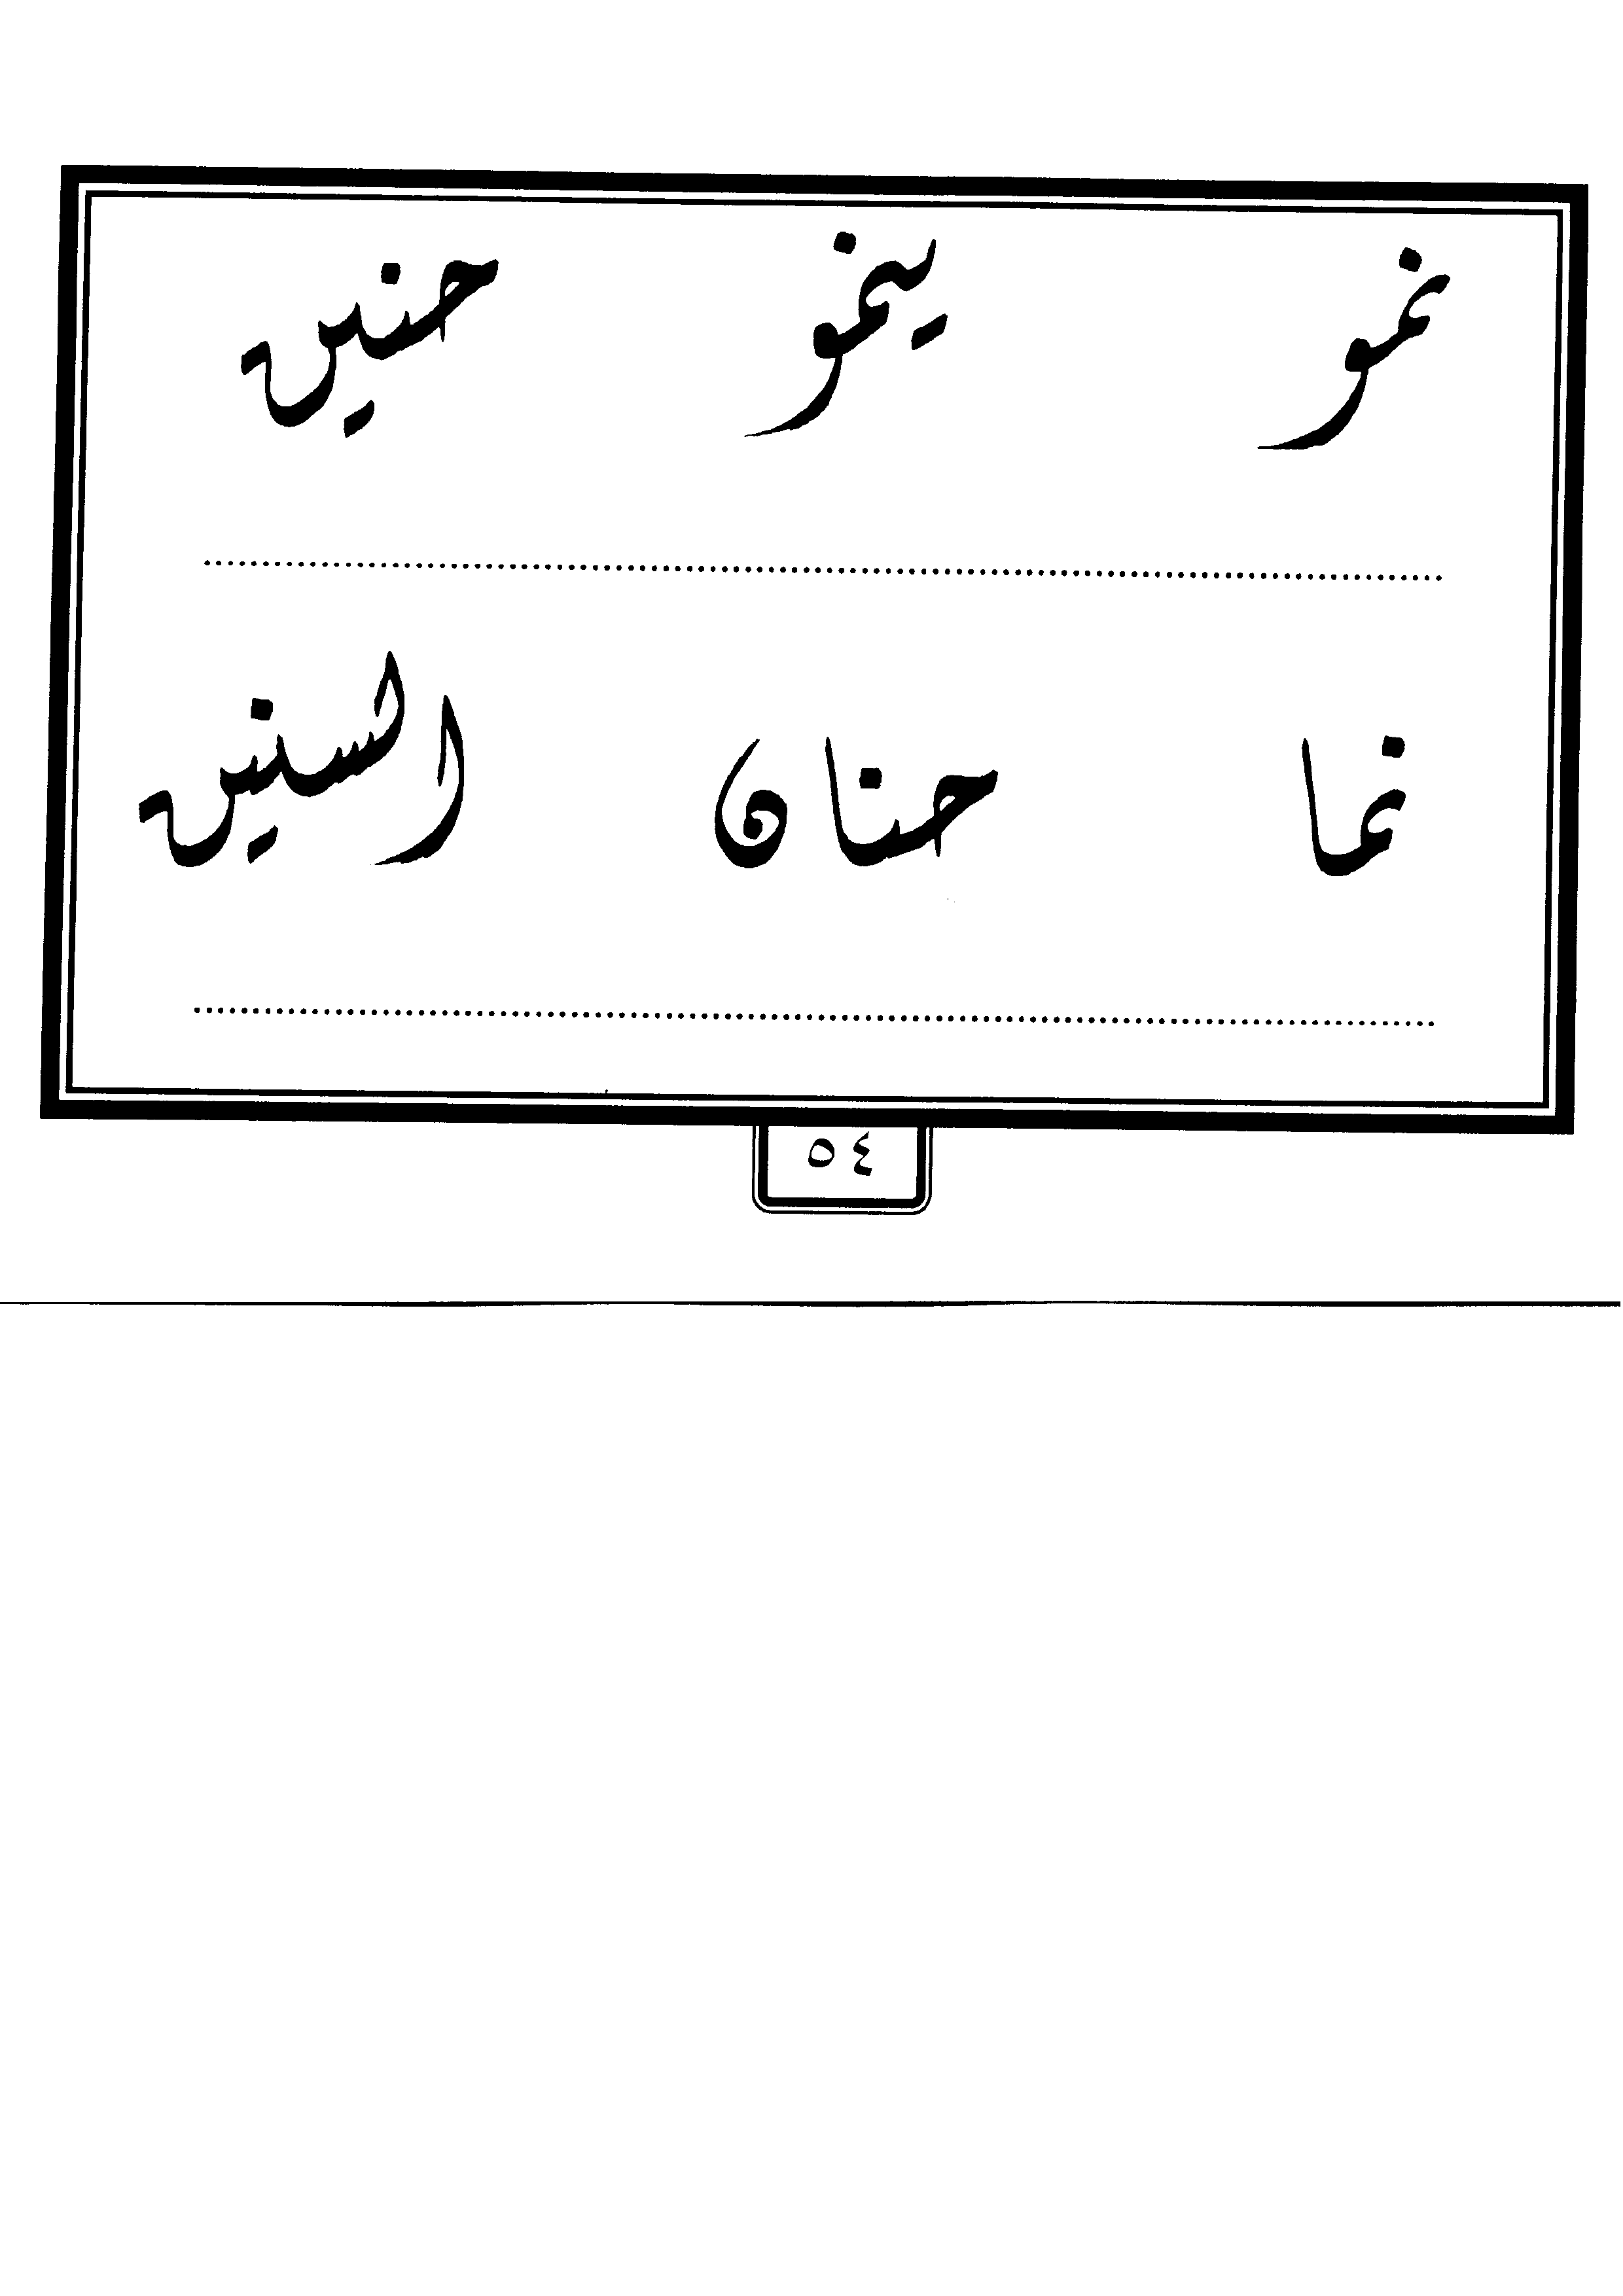 نمو ينمو حنين
نما حنان السنين
٥٤